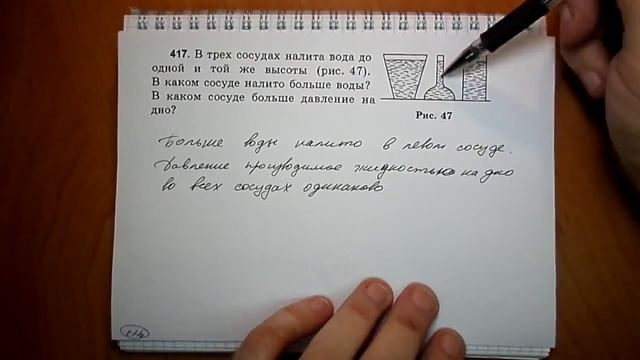 417. В трех сосудах налита вода до
одной и той же высоты (рис. 47).
В каком сосуде налито больше воды?
В каком сосуде больше давление на
дно?
Рис. 47
Больше воды налито в левом сосуде.
Давление производимое жидкостью на дно
во всех сосудах одинаково